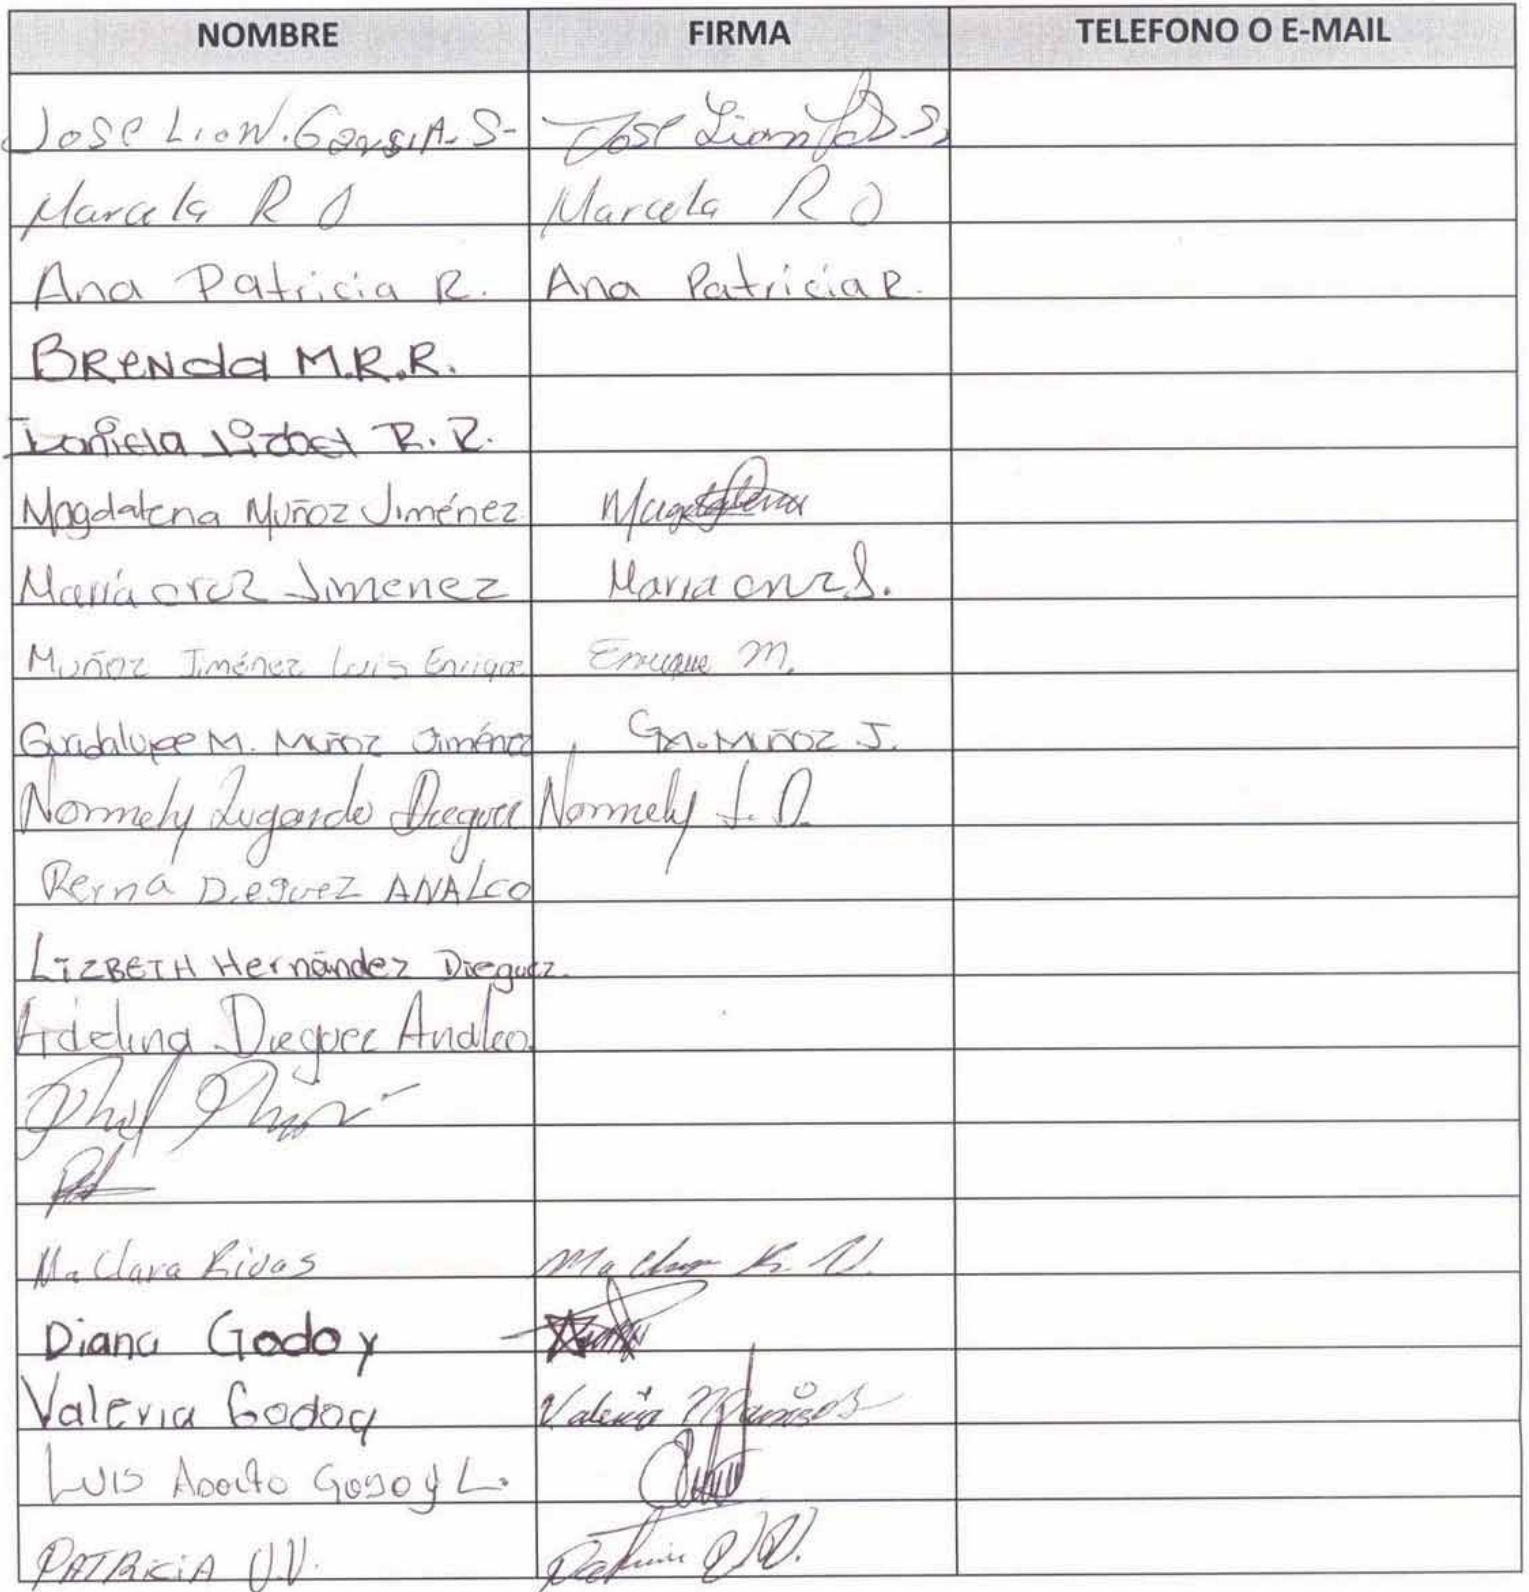 NOMBRE FIRMA TELEFONO O E-MAIL
Jose Lion. Garsia. S- Jose Lion
Marcela R O Marcela R O
Ana Patricia R. Ana Patricia R.
BRENda M.R.R.
Daniela Lizbet R. R.
Magdalena Muñoz Jiménez Magdalena
María cruz Jimenez Maria cruz J.
Muñoz Jiménez Luis Enrique Enrique M.
Guadalupe M. Muñoz Jiménez G.M. Muñoz J.
Normely Lugardo Dieguez Normely L. D.
Reyna Dieguez ANALCO
LIZBETH Hernández Dieguez.
Adelina Dieguez Analco
Ma Clara Rivas Ma Clara R. V.
Diana Godoy
Valeria Godoy Valeria
LUIS Adolfo Godoy L.
PATRICIA V.V.